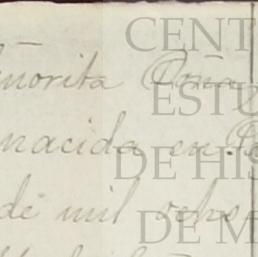 ñorita Doña
nacida en
de mil ocho
CENT
EST
DE HIS
DE M